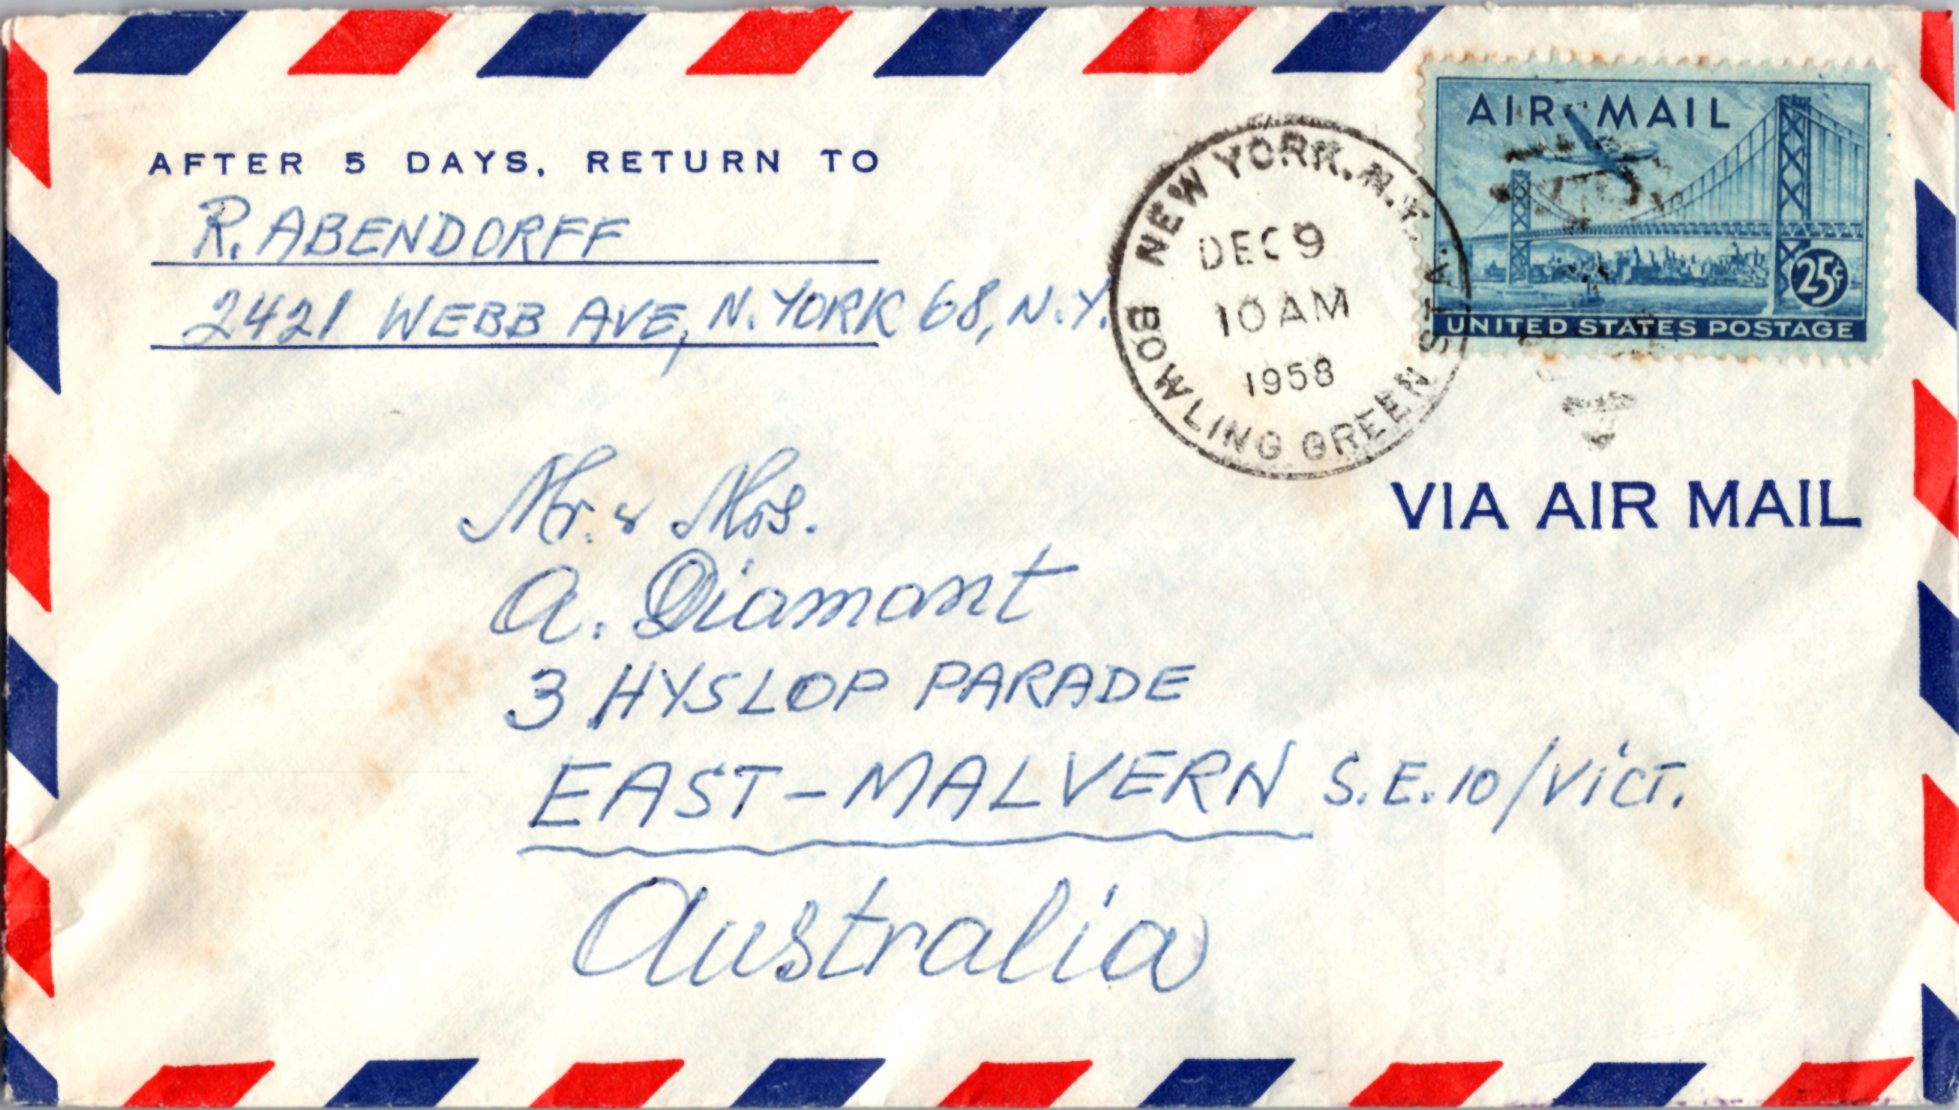 AFTER 5 DAYS, RETURN TO
R. ABENDORFF
2421 WEBB AVE, N. YORK 68, N.Y.
NEW YORK, N.Y.
DEC 9
10 AM
1958
BOWLING GREEN STA.
AIR MAIL
25¢
UNITED STATES POSTAGE
VIA AIR MAIL
Mr. & Mrs.
A. Diamant
3 HYSLOP PARADE
EAST-MALVERN S.E. 10/VICT.
Australia